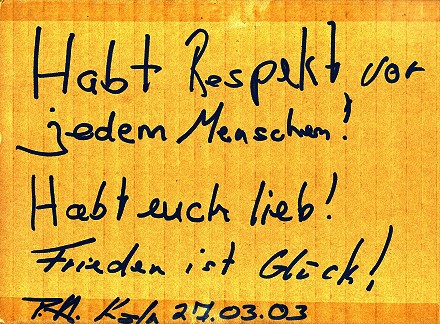 Habt Respekt vor
jedem Menschen!
Habt euch lieb!
Frieden ist Glück!
27.03.03